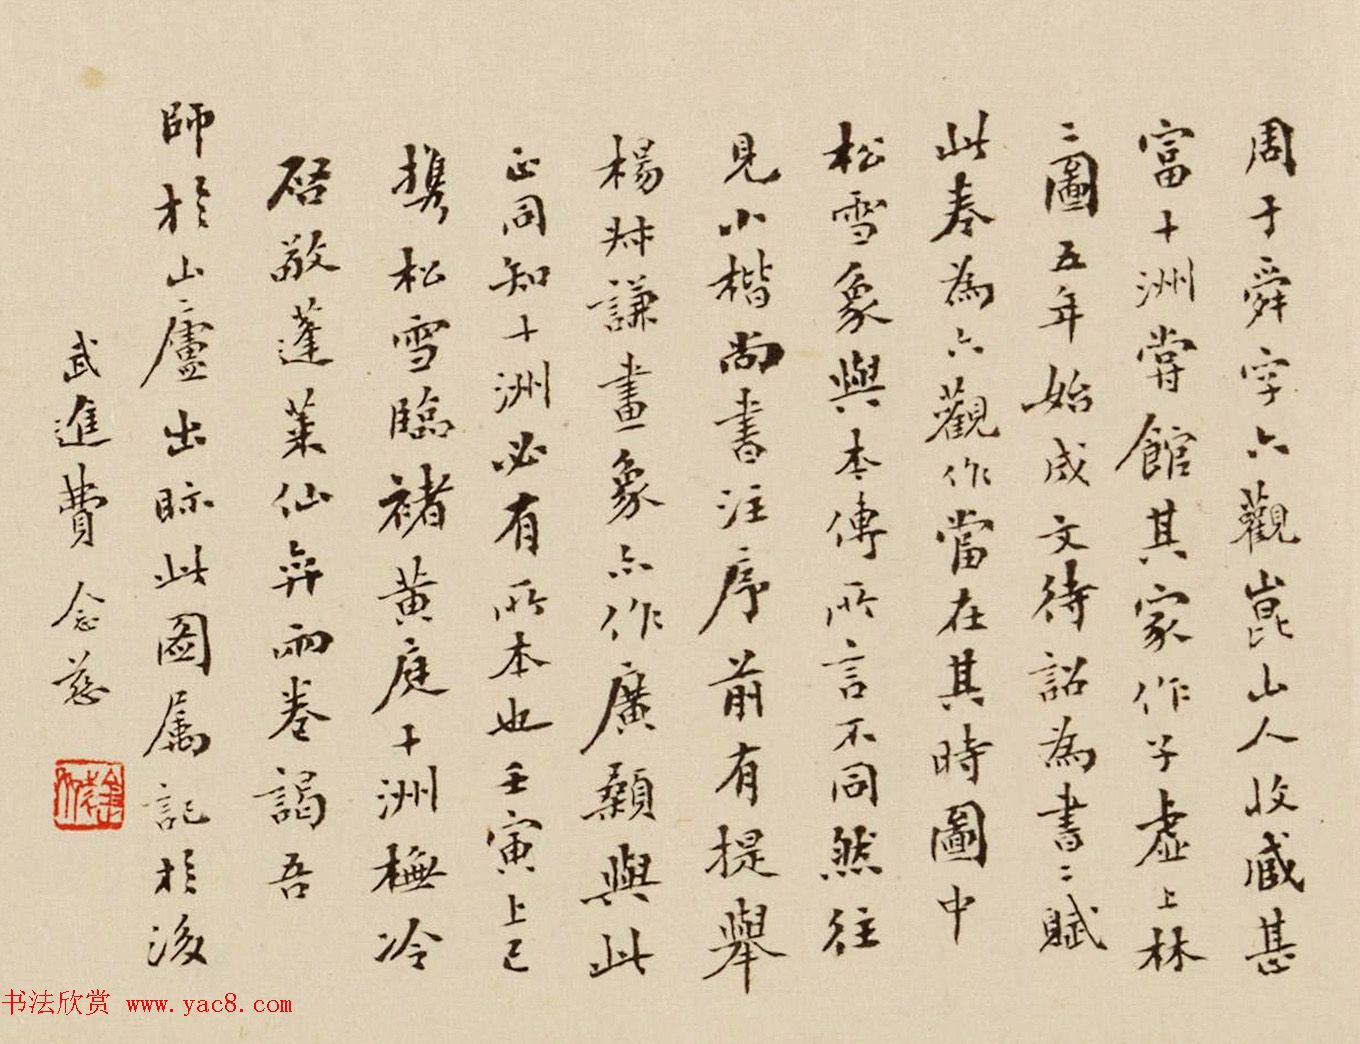 周于舜字六觀崑山人收藏甚
富十洲嘗館其家作子虛上林
二圖五年始成文待詔為書二賦
此卷為六觀作當在其時圖中
松雪象與本傳所言不同然往
見小楷尚書注序前有提舉
楊叔謙畫象亦作廣顙與此
正同知十洲必有所本也壬寅上巳
携松雪臨褚黃庭十洲橅冷
启敬蓬萊仙弈兩卷謁吾
師於山廬出眎此圖属記於後
武進費念慈
书法欣赏 www.yac8.com